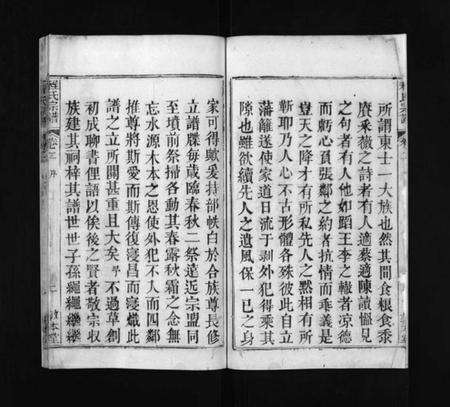 所謂東士一大族也然其間食糗食黍
賡采薇之詩者有人適蔡適陳讀慍見
之句者有人他如蹈王李之轍者涼德
而虧心負張鄰之約者抗情而乖義是
豈天之降才有所私先人之默相有所
靳耶乃人心不古形體各殊彼此自立
藩籬遂使家道日流于剥外犯得乘其
隙也雖欲續先人之遺風保一已之身
家可得歟爰持部帙白於合族尊長修
立譜牒每歲臨春秋二祭遠近宗盟同
至墳前祭掃各動其春露秋霜之念無
忘水源木本之恩使外犯不入而四鄰
推尊將斯愛而斯傳復寢昌而寢熾此
譜之立所關甚重且大矣予不過草創
初成聊書俚語以俟後之賢者敬宗收
族建其祠梓其譜世世子孫繩繩繼繼
程氏宗譜 卷之 序
敦本堂